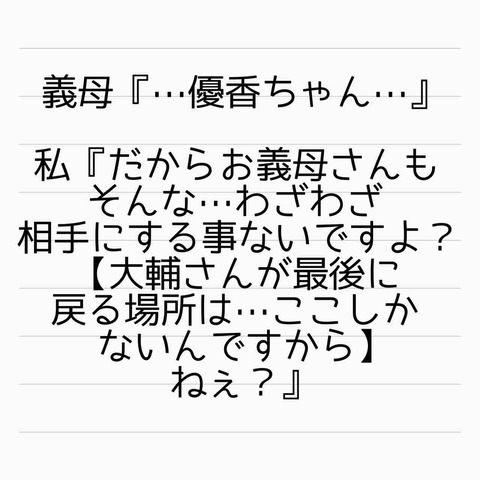 義母『…優香ちゃん…』
私『だからお義母さんも
そんな…わざわざ
相手にする事ないですよ？
【大輔さんが最後に
戻る場所は…ここしか
ないんですから】
ねぇ？』